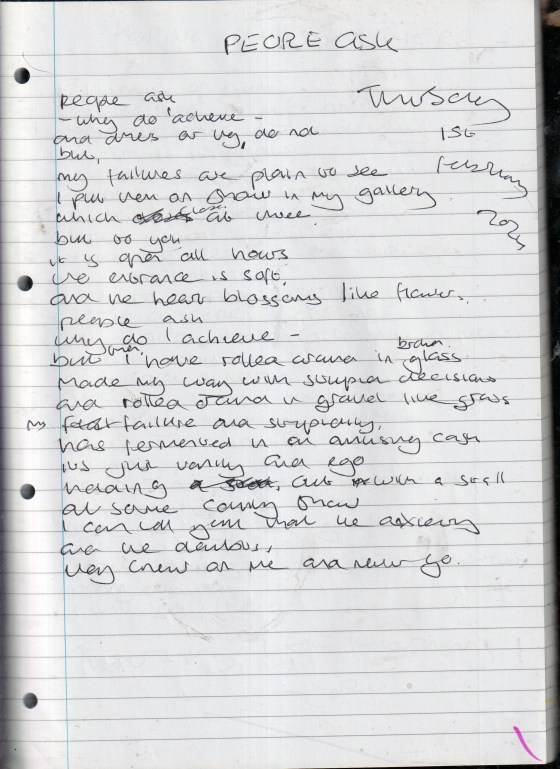 PEOPLE ASK
Thursday
1st
February
people ask
- why do I achieve -
and others or why, do not
but,
my failures are plain to see
I put them on show in my gallery
which closes at three
but to you
it is open all hours
the entrance is soft,
and the heart blossoms like flowers.
people ask
why do I achieve -
but I have rolled around in broken glass
made my way with stupid decisions
and rolled around in gravel like grass
my failure and stupidity,
has fermented in an amusing cash
its just vanity and ego
heading out with a stall
at some county show
I can tell you that the anxiety
and the doubts,
they chew on me and never go.